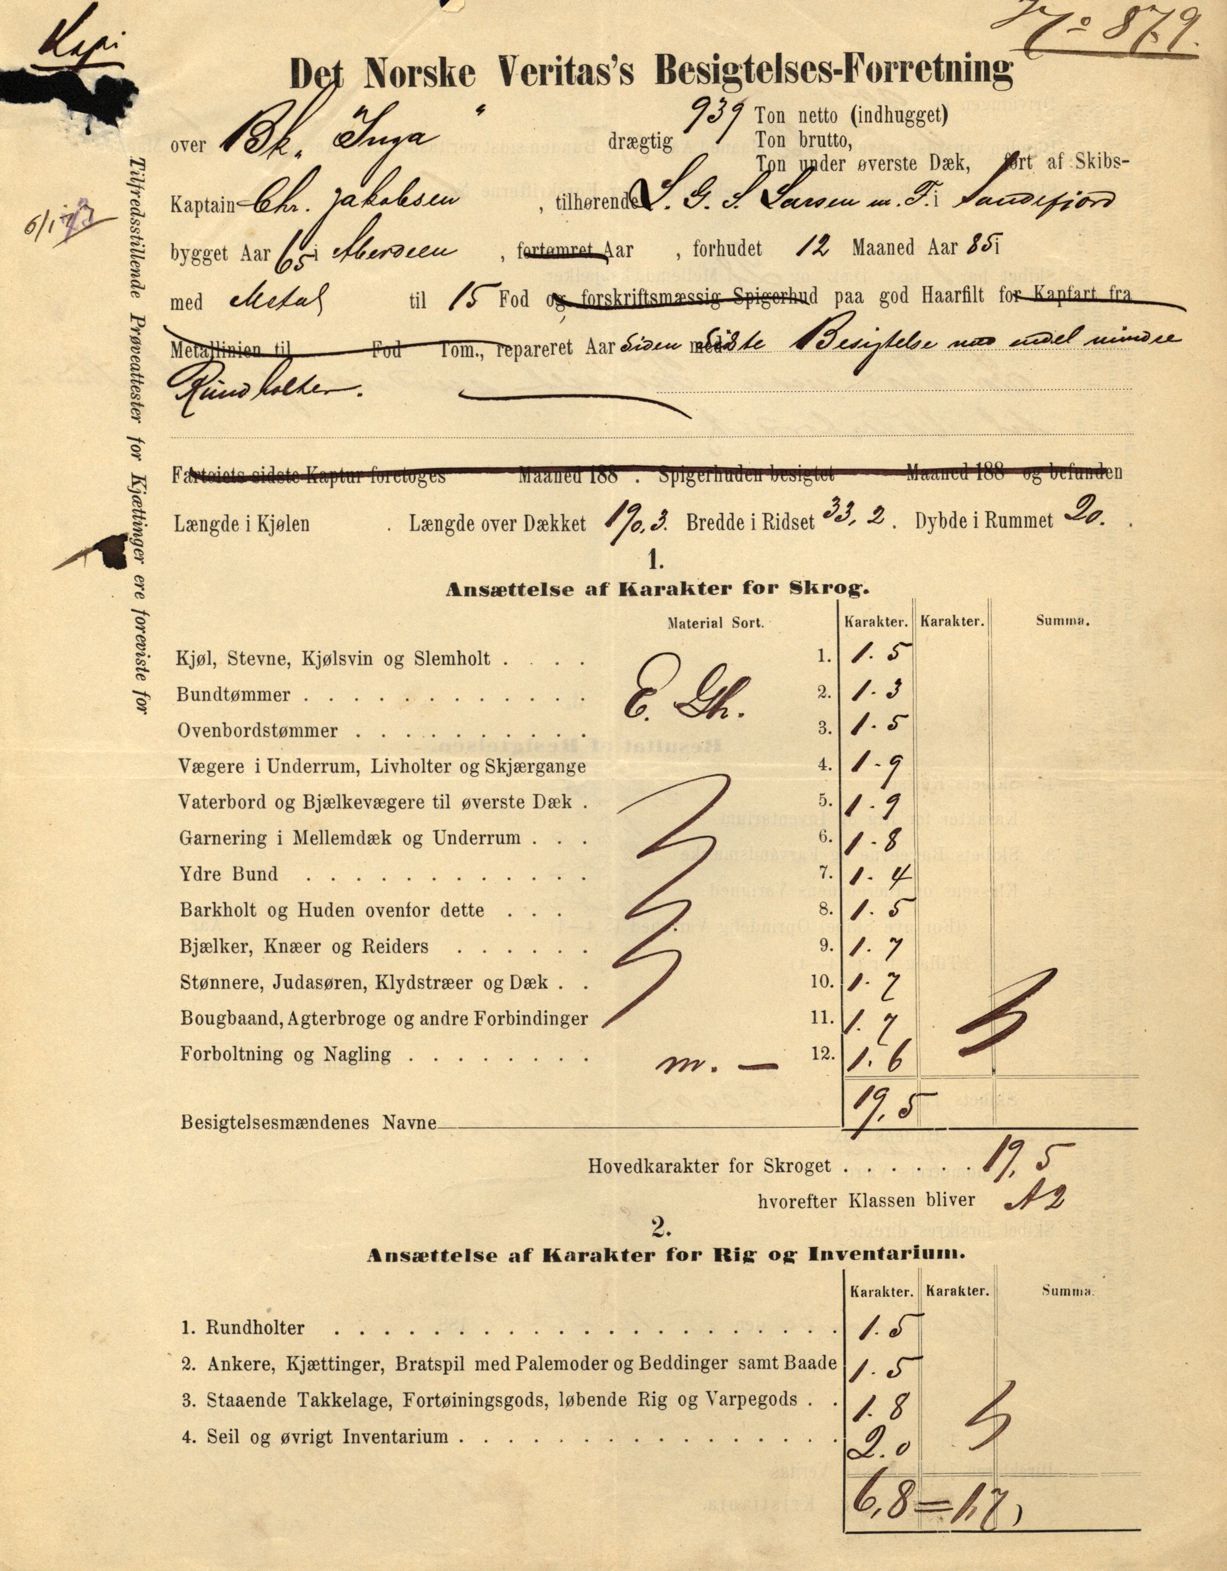 Kopi
No 879.
Det Norske Veritas's Besigtelses-Forretning
over Bk. "Inga" drægtig 939 Ton netto (indhugget)
Ton brutto,
Ton under øverste Dæk, ført af Skibs-
Kaptain Chr. Jakobsen, tilhørende S. G. S. Larsen m. F. i Sandefjord
bygget Aar 65 i Aberdeen, fortømret Aar , forhudet 12 Maaned Aar 85 i
med Metal til 15 Fod og forskriftsmæssig Spigerhud paa god Haarfilt for Kapfart fra
Metallinien til Fod Tom., repareret Aar Siden med sidste Besigtelse endel mindre
Rundholter.
Fartøiets sidste Kaptur foretoges Maaned 188 . Spigerhuden besigtet Maaned 188 og befunden
Længde i Kjølen . Længde over Dækket 190,3. Bredde i Ridset 33,2. Dybde i Rummet 20. .
1.
Ansættelse af Karakter for Skrog.
Material Sort. Karakter. Karakter. Summa.
Kjøl, Stevne, Kjølsvin og Slemholt . . . . 1. 1.5
Bundtømmer . . . . . . . . . . . . E. Gh. 2. 1.3
Ovenbordstømmer . . . . . . . . . . 3. 1.5
Vægere i Underrum, Livholter og Skjærgange 4. 1.9
Vaterbord og Bjælkevægere til øverste Dæk . 5. 1.9
Garnering i Mellemdæk og Underrum . . . 6. 1.8
Ydre Bund . . . . . . . . . . . . 7. 1.4
Barkholt og Huden ovenfor dette . . . 8. 1.5
Bjælker, Knæer og Reiders . . . . . . 9. 1.7
Stønnere, Judasøren, Klydstræer og Dæk . . 10. 1.7
Bougbaand, Agterbroge og andre Forbindinger 11. 1.7
Forboltning og Nagling . . . . . . . . m. — 12. 1.6
19,5
Besigtelsesmændenes Navne
Hovedkarakter for Skroget . . . . . . 19,5
hvorefter Klassen bliver A2
2.
Ansættelse af Karakter for Rig og Inventarium.
Karakter. Karakter. Summa.
1. Rundholter . . . . . . . . . . . . . . . . . . . 1.5
2. Ankere, Kjættinger, Bratspil med Palemoder og Beddinger samt Baade 1.5
3. Staaende Takkelage, Fortøiningsgods, løbende Rig og Varpegods . . 1.8
4. Seil og øvrigt Inventarium . . . . . . . . . . . . . . 2.0
6,8 = 1,7,
Tilfredsstillende Prøveattester for Kjættinger ere foreviste for